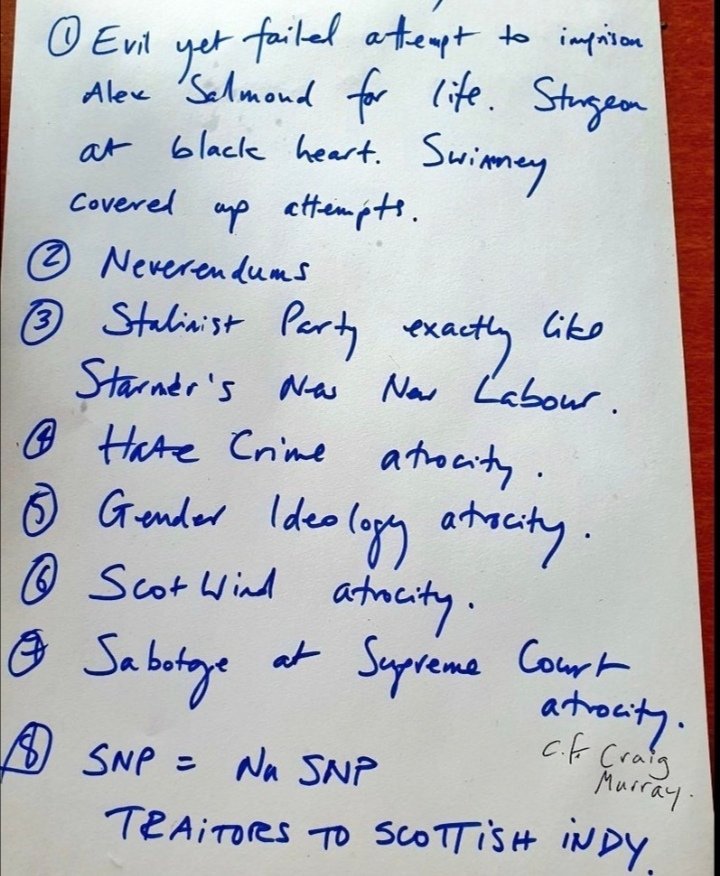 ① Evil yet failed attempt to imprison
Alex Salmond for life. Sturgeon
at black heart. Swinney
covered up attempts.
② Neverendums
③ Stalinist Party exactly like
Starmer's New New Labour.
④ Hate Crime atrocity.
⑤ Gender Ideology atrocity.
⑥ ScotWind atrocity.
⑦ Sabotage at Supreme Court
atrocity.
c.f. Craig
Murray.
⑧ SNP = Nu SNP
TRAITORS TO SCOTTISH INDY.